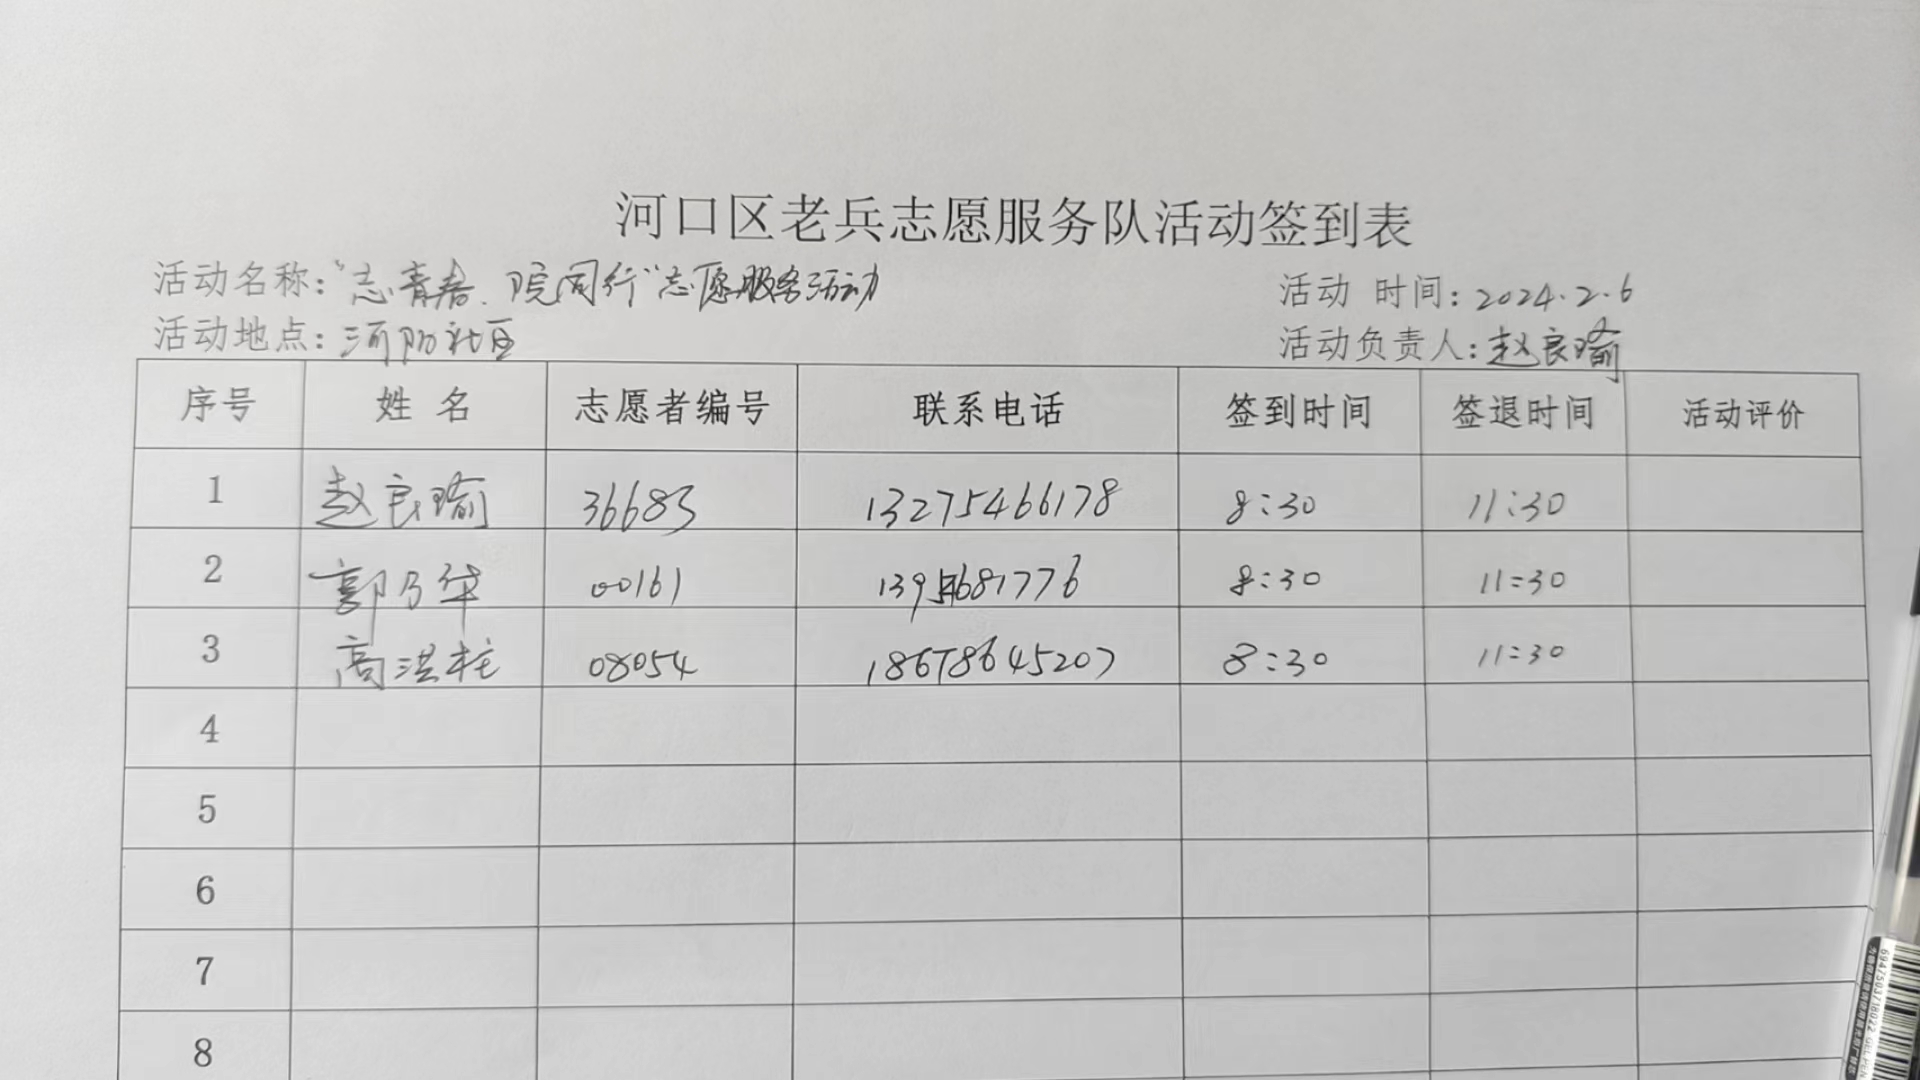 河口区老兵志愿服务队活动签到表
活动名称:“志青春、院同行”志愿服务活动
活动 时间:2024.2.6
活动地点:河防社区
活动负责人:赵良瑜
序号 姓 名 志愿者编号 联系电话 签到时间 签退时间 活动评价
1 赵良瑜 36683 13275466178 8:30 11:30
2 郭乃华 00161 8:30 11:30
3 高洪柱 08054 18678645207 8:30 11:30
4
5
6
7
8